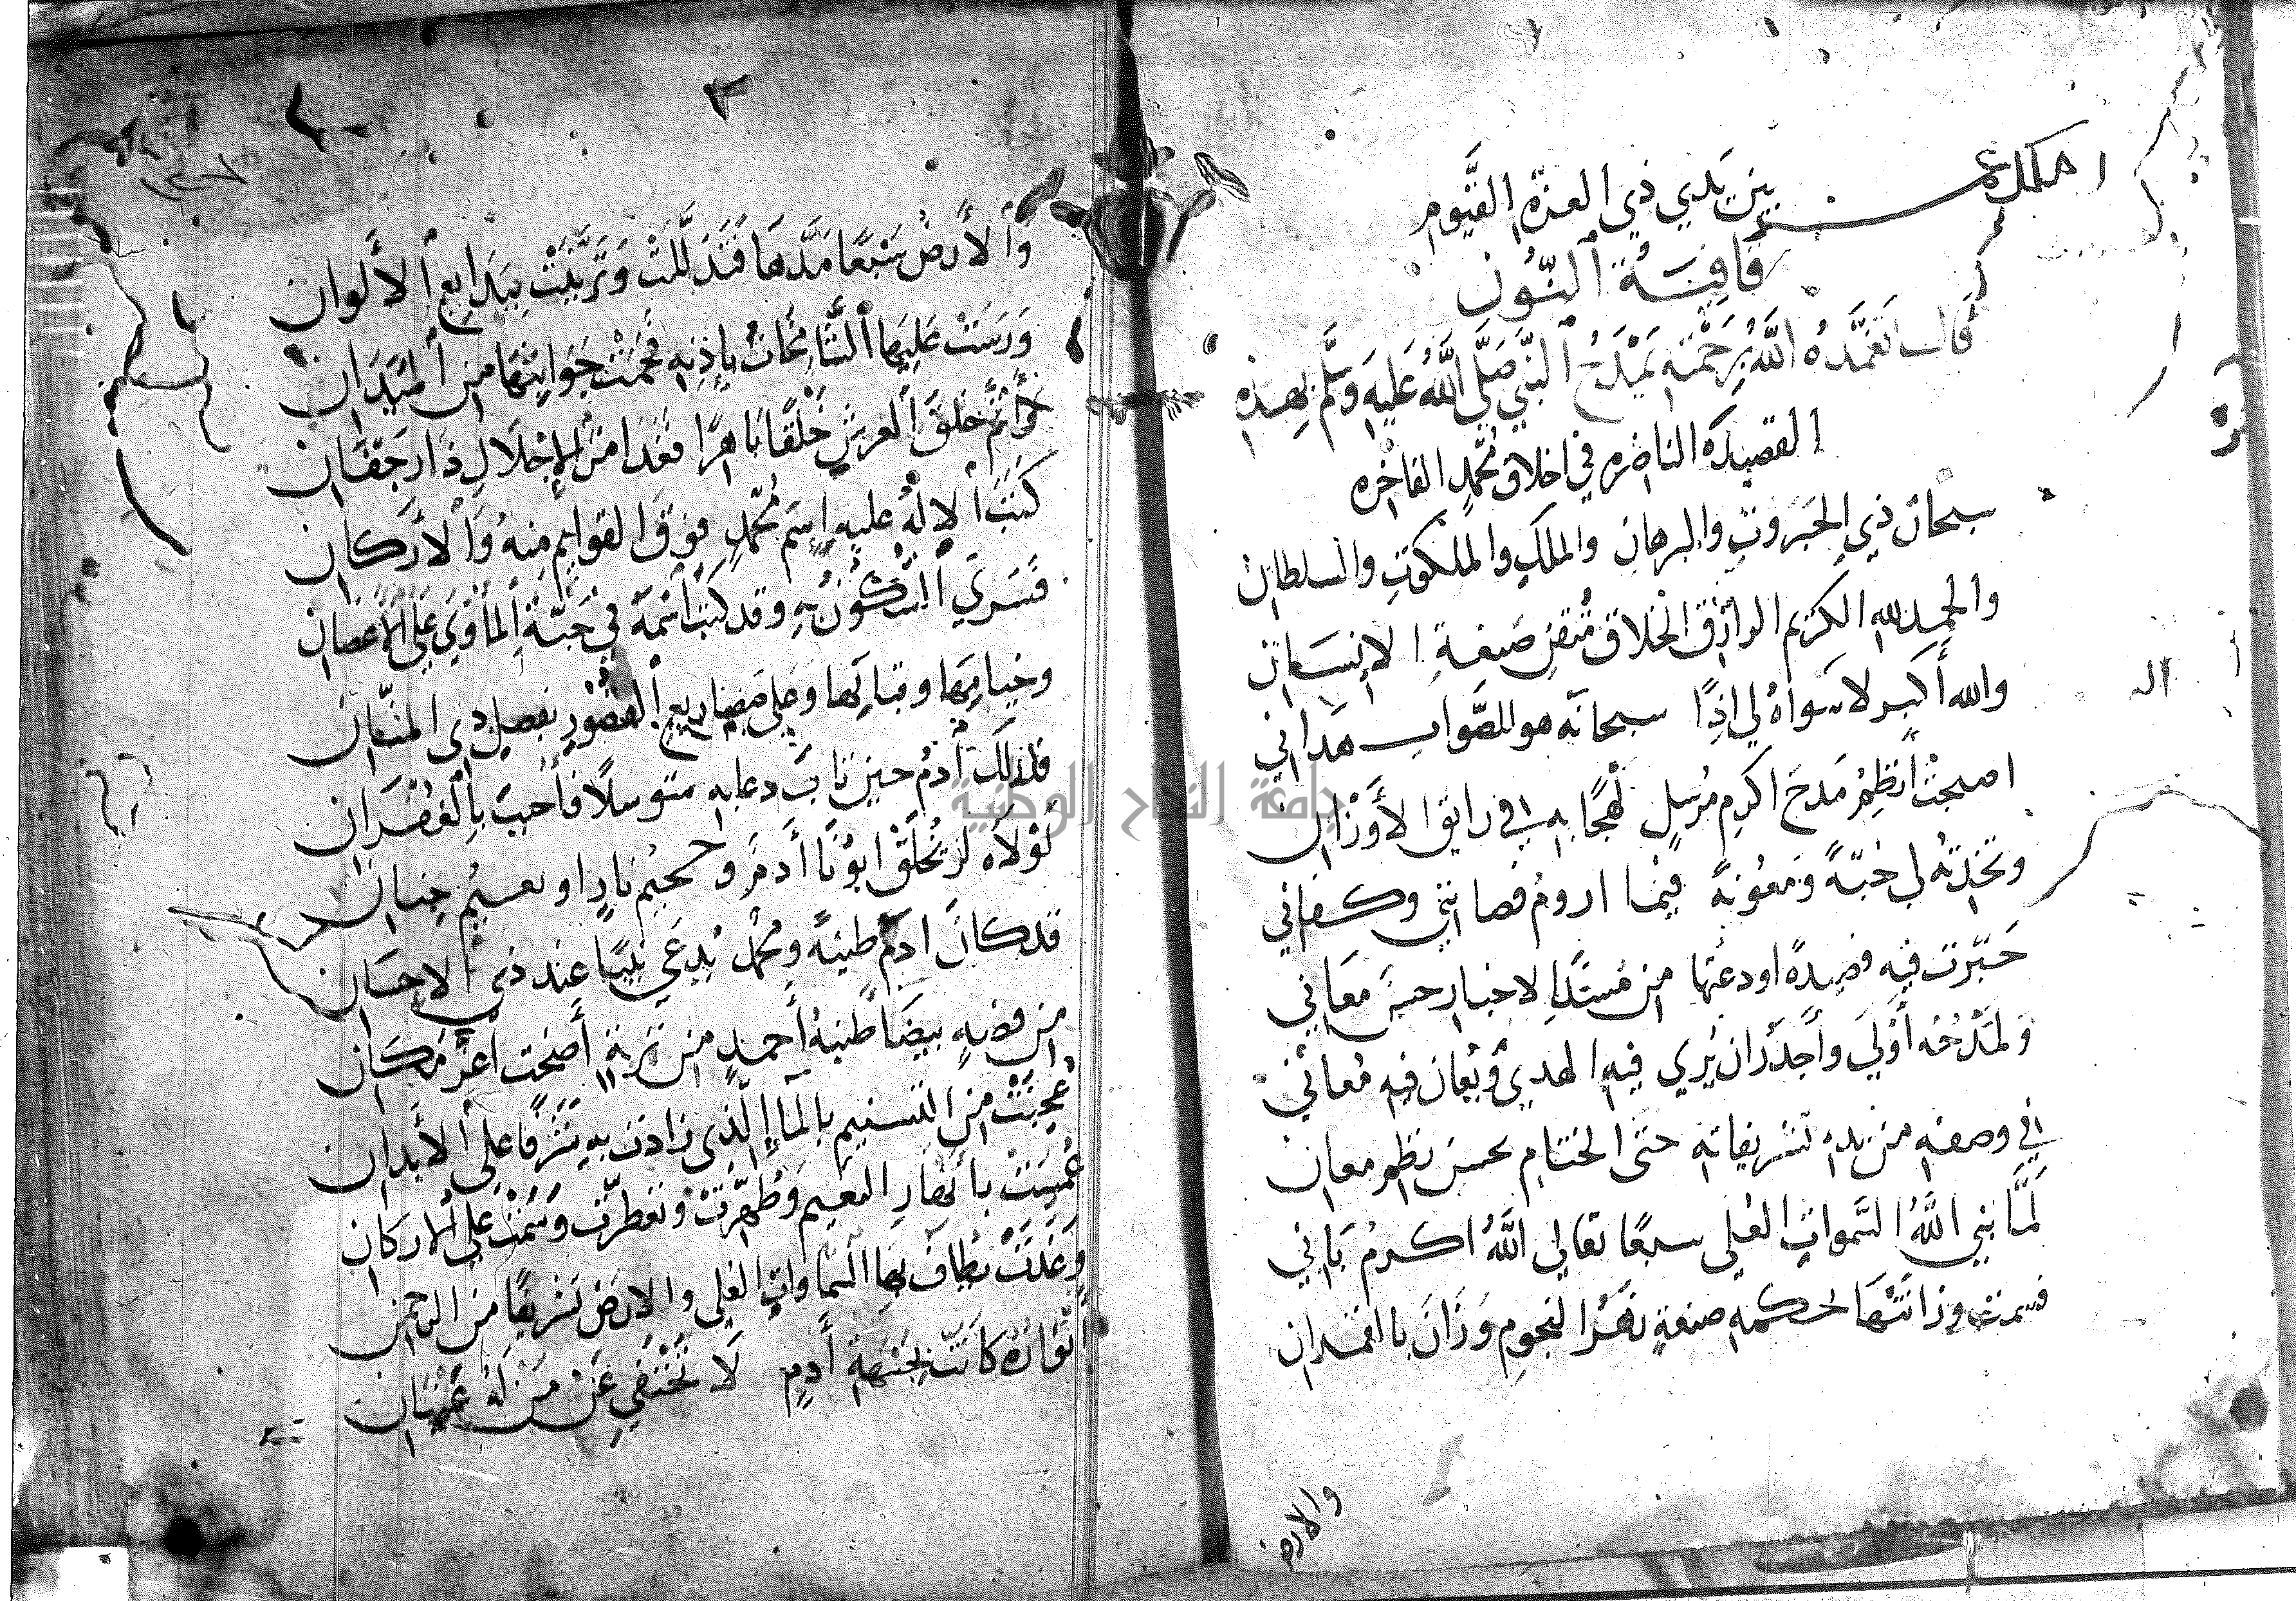 بين يدي ذي العزة القيوم
قافِيَةُ ٱلنُّون
قال تَغَمَّدَهُ اللَّهُ بِرَحْمَتِهِ يَمْدَحُ ٱلنَّبِيَّ صَلَّى اللَّهُ عَلَيْهِ وَسَلَّم بِهٰذِه
القصيدَة الناضره في اخلاق مُحَمَّدٍ الفاخره
سبحان ذي الجَبَروتِ والبرهانِ والملكِ والملكوتِ والسلطان
والحمد لله الكريم الرازق الخلاق مُتقنِ صَنعةِ الانسَان
والله أكبر لا سواهُ لي اذًا سبحانَه هو للصَّواب هَدَاني
اصبحتُ أنظِمُ مَدحَ اكرمِ مُرسَلٍ لَهِجًا به في رايق الأَوْزان
وتخذتُه لي جُنّةً ومَعُونةً فيمَا ارومُ فصانني وكفاني
حَبّرتُ فيه قصيدةً اودعتُها من مُسنَدِ الاخبار حسنَ معَاني
وَلَمَدْحُه أَوْلَى وأجدَرُ ان يُرى فيه الهدى ويُعانَ فيه مُعاني
في وصفه من بدءِ تشريفاته حتى الختامِ بحسن نظم معان
لَمَّا بني اللَّهُ السَّمواتِ العُلى سبعًا تعالى اللَّهُ اكرمُ بَاني
فسمت وزانتها لحكمه صنعةٍ زُهْرُ النجومِ وَزَانَ بالقمران
والارض
٣
١٢٧
وَٱلأَرضُ سَبْعًا مَدَّهَا فَتَذَلَّلَتْ وَتَزَيَّنَتْ بِبَدايع ٱلألوان
وَرَسَتْ عَلَيها ٱلشَّامِخاتُ بإذنِهِ فَحَمَتْ جَوانِبَهَا من ٱلمَيَدَان
وَأَتَمَّ خَلْقَ ٱلعرشِ خَلْقًا باهرًا فغدَا من ٱلإجْلَالِ ذَا رَجَفَان
كَتَبَ ٱلإلٰهُ عليه إسمَ مُحَمَّدٍ فوقَ القوايمِ مِنهُ وَٱلأركان
فَسَرَى ٱلسُّكُونُ بِه وقد كَتَبَ ٱسْمَهُ في جَنّةِ ٱلمَأْوَى عَلى الأَغصان
وخيامِها وقبابِها وعلى مَصَاريع ٱلقصُورِ بفصلِ ذي المنّان
فلذلك آدمُ حين تابَ دعا به متوسلًا فأُجيبَ بٱلغُفْران
لَوْلاه لم يُخلَقْ ابُونَا أَدمَ وجحيمُ نارٍ او نعيمُ جِنان
قد كانَ ادَمُ طينةً ومُحَمَّدٌ يُدعَى نَبِيًّا عِند ذي الاحسَان
من فضةٍ بيضَا طينةُ أحمدٍ من تُربةٍ أضحَت أعزَّ مَكَان
عُجِنَتْ من التسنيم بالما ٱلذي زادت به شَرَفًا على ٱلأبدان
غُمِسَتْ بأنهارِ النعيم وَطُهِّرَتْ وتعطرَت وَسَمَت على ٱلاركان
وَغَدَتْ يُطافُ بها ٱلسَّماواتِ العُلى والارضَ تشريفًا من الرحمن
أنوارُهُ كانَتْ بجَبْهَةِ أَدمٍ لَا تَخْتَفي عَن مَن لهُ عَيْنَان
جامعة النجاح الوطنية